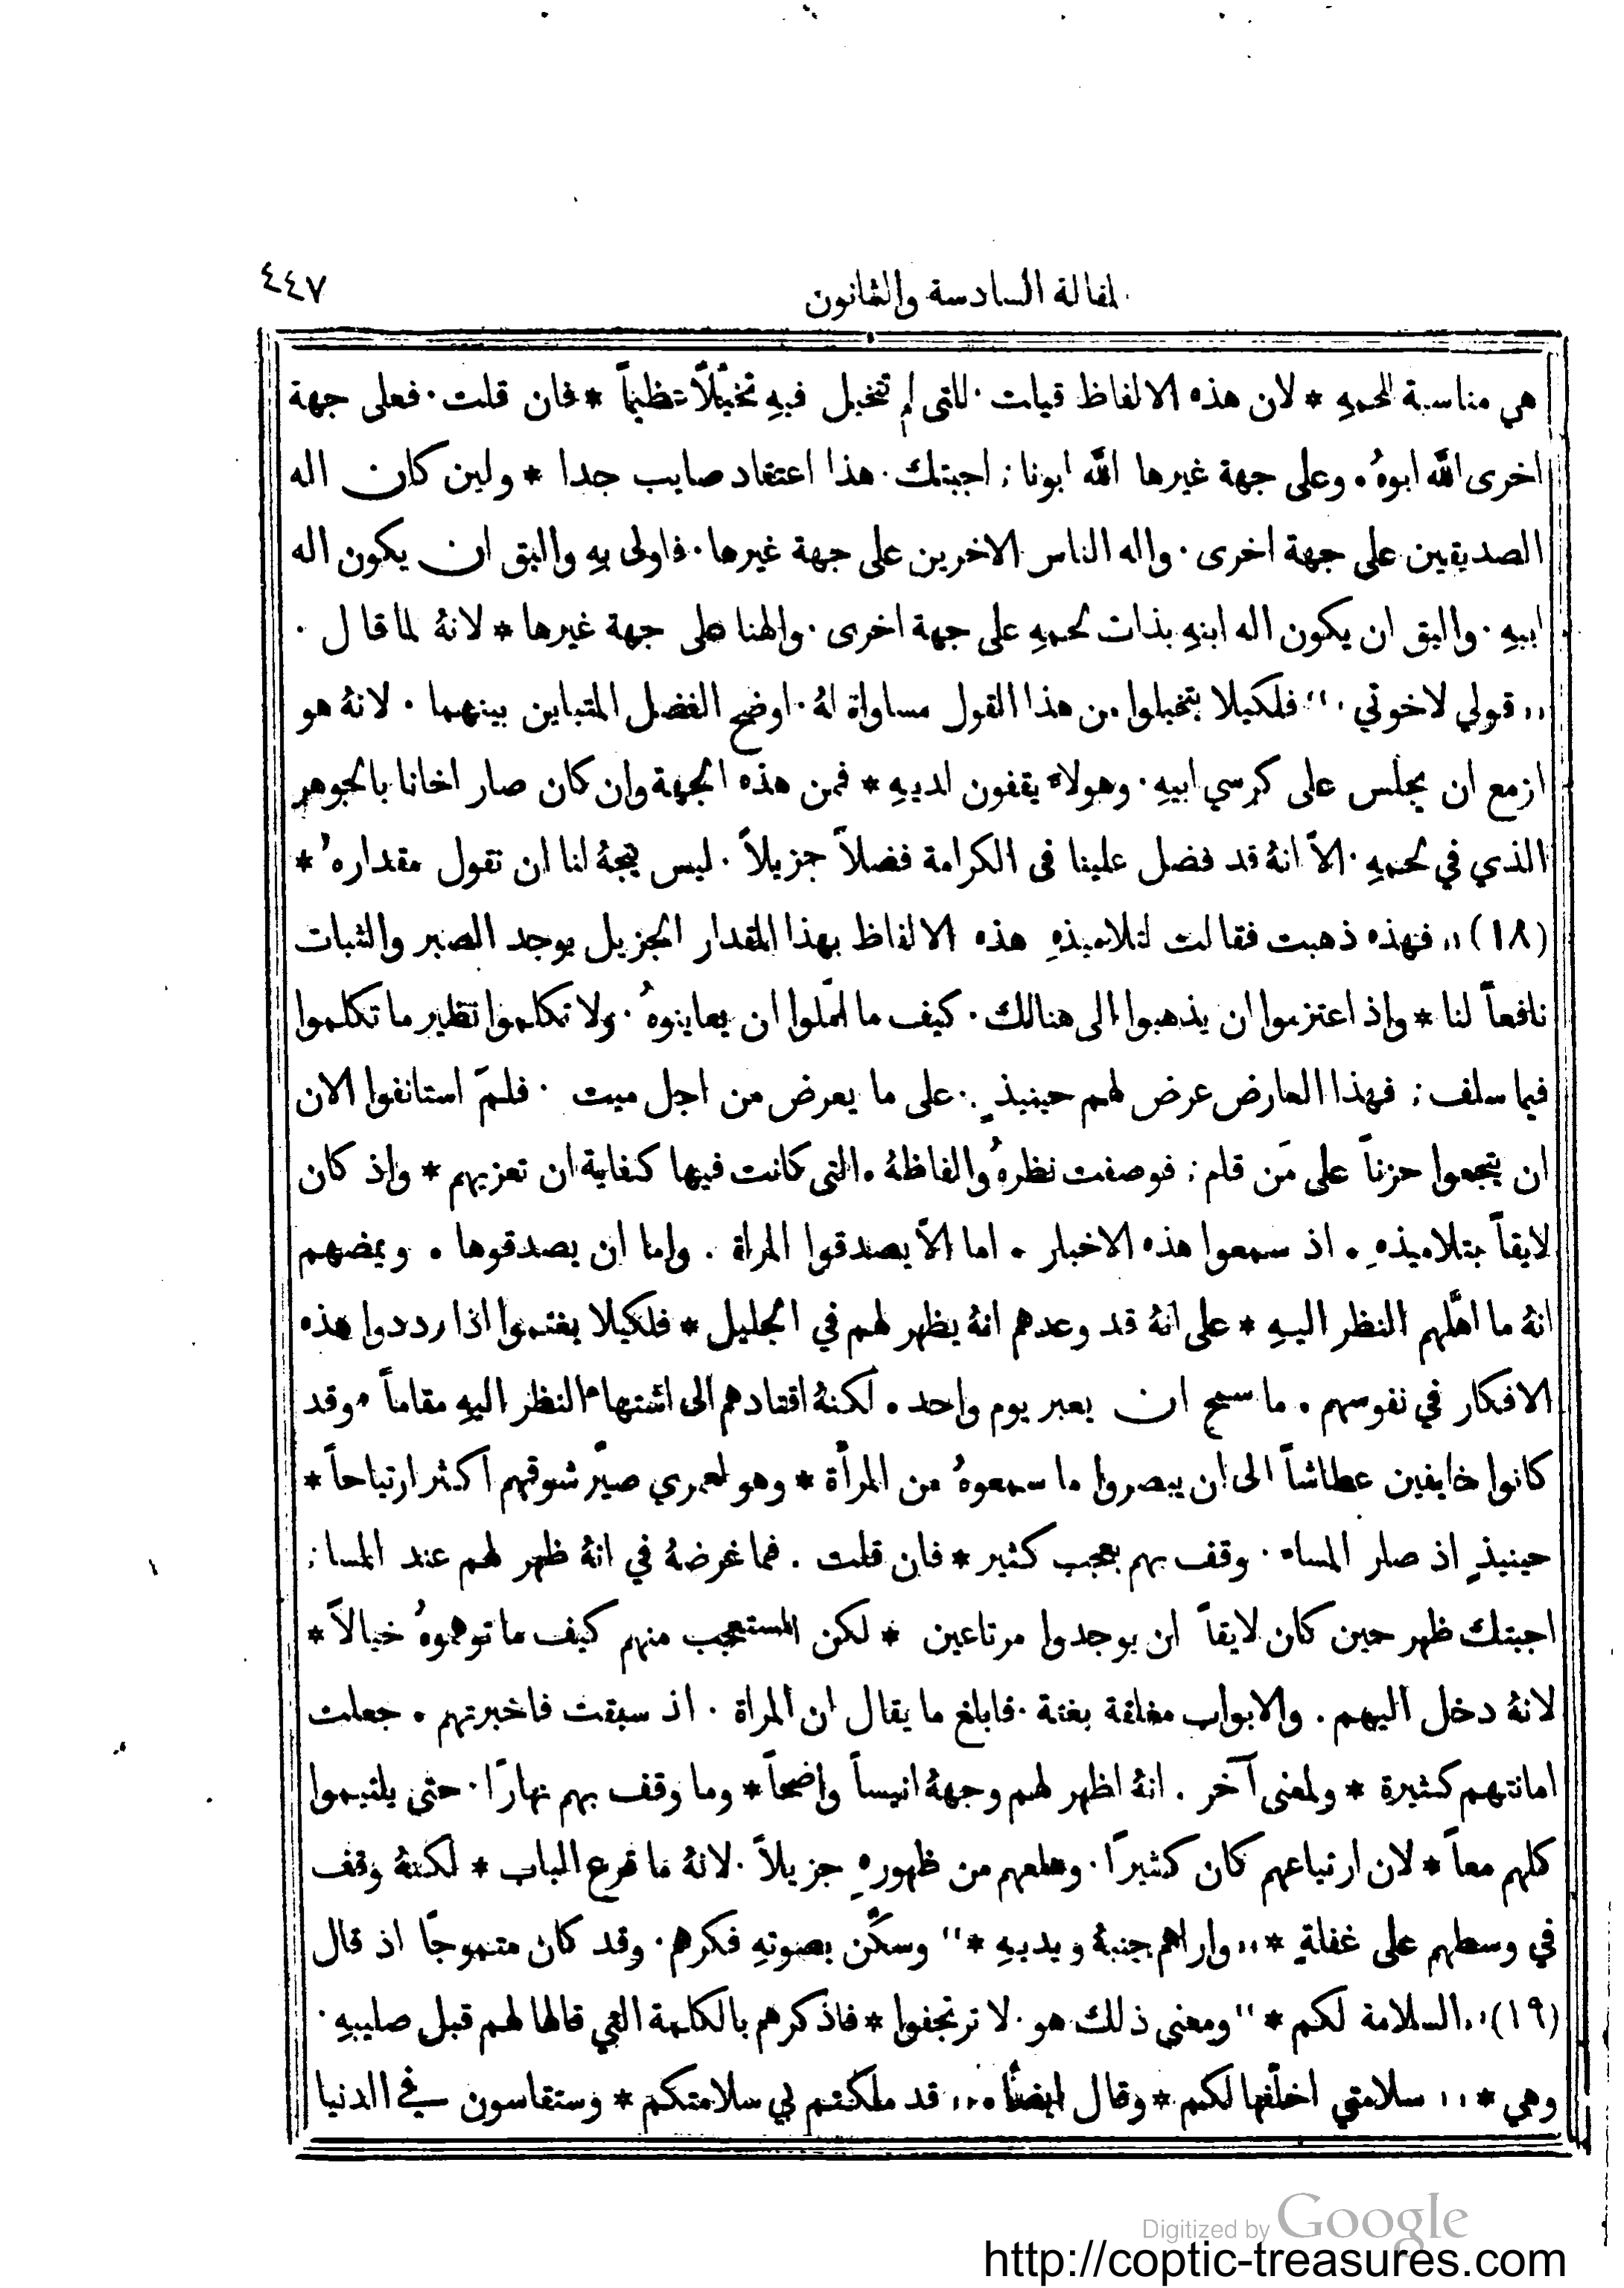 المقالة السادسة والثمانون ٤٤٧
هي مناسبة لحمهِ * لان هذه الالفاظ قيلت · للتي لم تتخيل فيهِ تخيّلاً عظيماً * فان قلت · فعلى جهة
اخرى الله ابوهُ . وعلى جهة غيرها الله ابونا ; اجبتك · هذا اعتقاد صايب جدا * ولين كان اله
الصديقين على جهة اخرى · واله الناس الاخرين على جهة غيرها · فاولى بهِ واليق ان يكون اله
ابيهِ · واليق ان يكون اله ابنهِ بذات لحمهِ على جهة اخرى · والهنا على جهة غيرها * لانهُ لما قال ·
,, قولي لاخوتي · ,, فلكيلا يتخيلوا من هذا القول مساواة لهُ · اوضح الفضل المتباين بينهما · لانهُ هو
ازمع ان يجلس على كرسي ابيهِ · وهولاء يقفون لديهِ * فمن هذه الجهة وان كان صار اخانا بالجوهر
الذي في لحمهِ · الاّ انهُ قد فضل علينا في الكرامة فضلاً جزيلاً · ليس يتجهُ لنا ان نقول مقداره ُ *
(١٨) ,, فهذه ذهبت فقالت لتلاميذهِ هذه الالفاظ بهذا المقدار الجزيل يوجد الصبر والثبات
نافعاً لنا * واذ اعتزموا ان يذهبوا الى هنالك · كيف ما امّلوا ان يعاينوهُ · ولا تكلموا نظير ما تكلموا
فيما سلف ; فهذا العارض عرض لهم حينيذٍ · على ما يعرض من اجل ميت · فلمَ استانفوا الان
ان يتجعوا حزناً على مَن قام ; فوصفت نظرهُ والفاظهُ . التي كانت فيها كفاية ان تعزيهم * واذ كان
لايقاً بتلاميذهِ . اذ سمعوا هذه الاخبار . اما الاّ يصدقوا المراة . واما ان يصدقوها . ويمضهم
انهُ ما اهّلهم النظر اليهِ * على انهُ قد وعدهم انهُ يظهر لهم في الجليل * فلكيلا يغتموا اذا رددوا هذه
الافكار في نفوسهم . ما سمح ان يعبر يوم واحد . لكنهُ اقتادهم الى اشتهاء النظر اليهِ مقاماً . وقد
كانوا خايفين عطاشاً الى ان يبصروا ما سمعوهُ من المرأة * وهو لعمري صيّر شوقهم اكثر ارتياحاً *
حينيذٍ اذ صار المساء · وقف بهم بعجب كثير * فان قلت . فما غرضهُ في انهُ ظهر لهم عند المسا ;
اجبتك ظهر حين كان لايقاً ان يوجدوا مرتاعين * لكن المستعجب منهم كيف ما توهموهُ خيالاً *
لانهُ دخل اليهم . والابواب مغلقة بغتة · فابلغ ما يقال ان المراة · اذ سبقت فاخبرتهم . جعلت
امانتهم كثيرة * ولمعنى آخر . انهُ اظهر لهم وجههُ انيساً واضحاً * وما وقف بهم نهارًا · حتى يلتيموا
كلهم معاً * لان ارتياعهم كان كثيرًا · وهلعهم من ظهورهِ جزيلاً · لانهُ ما قرع الباب * لكنهُ وقف
في وسطهم على غفلةٍ * ,, واراهم جنبهُ ويديهِ * ,, وسكّن بصوتهِ فكرهم · وقد كان متموجًا اذ قال
(١٩) ,, السلامة لكم * ,, ومعنى ذلك هو · لا ترتجفوا * فاذكرهم بالكلمة التي قالها لهم قبل صليبهِ ·
وهي * ,, سلامتي اخلّفها لكم * وقال ايضًا . ,, قد ملكتم لي سلامتكم * وستقاسون في الدنيا
Digitized by Google
http://coptic-treasures.com